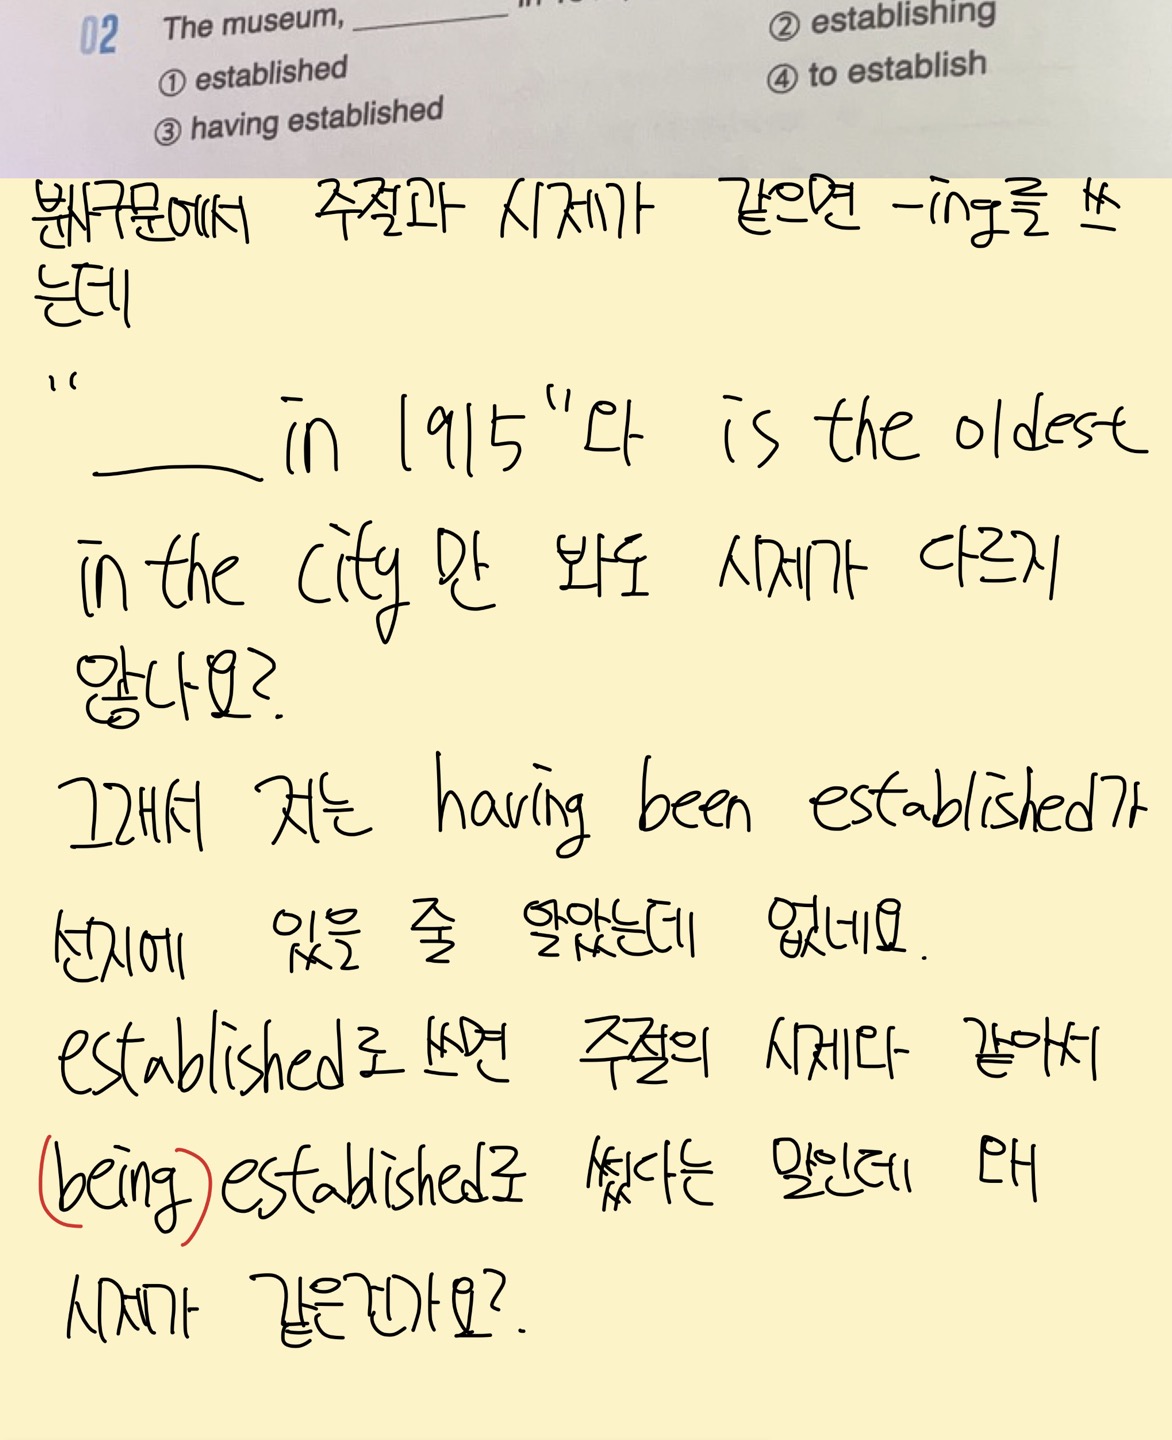 02 The museum, ________
① established ② establishing
③ having established ④ to establish
분사구문에서 주절과 시제가 같으면 -ing를 쓰
는데
"____ in 1915"와 is the oldest
in the city만 봐도 시제가 다르지
않나요?
그래서 저는 having been established가
선지에 있을 줄 알았는데 없네요.
established로 쓰면 주절의 시제와 같아서
(being) established로 썼다는 말인데 왜
시제가 같은건가요?